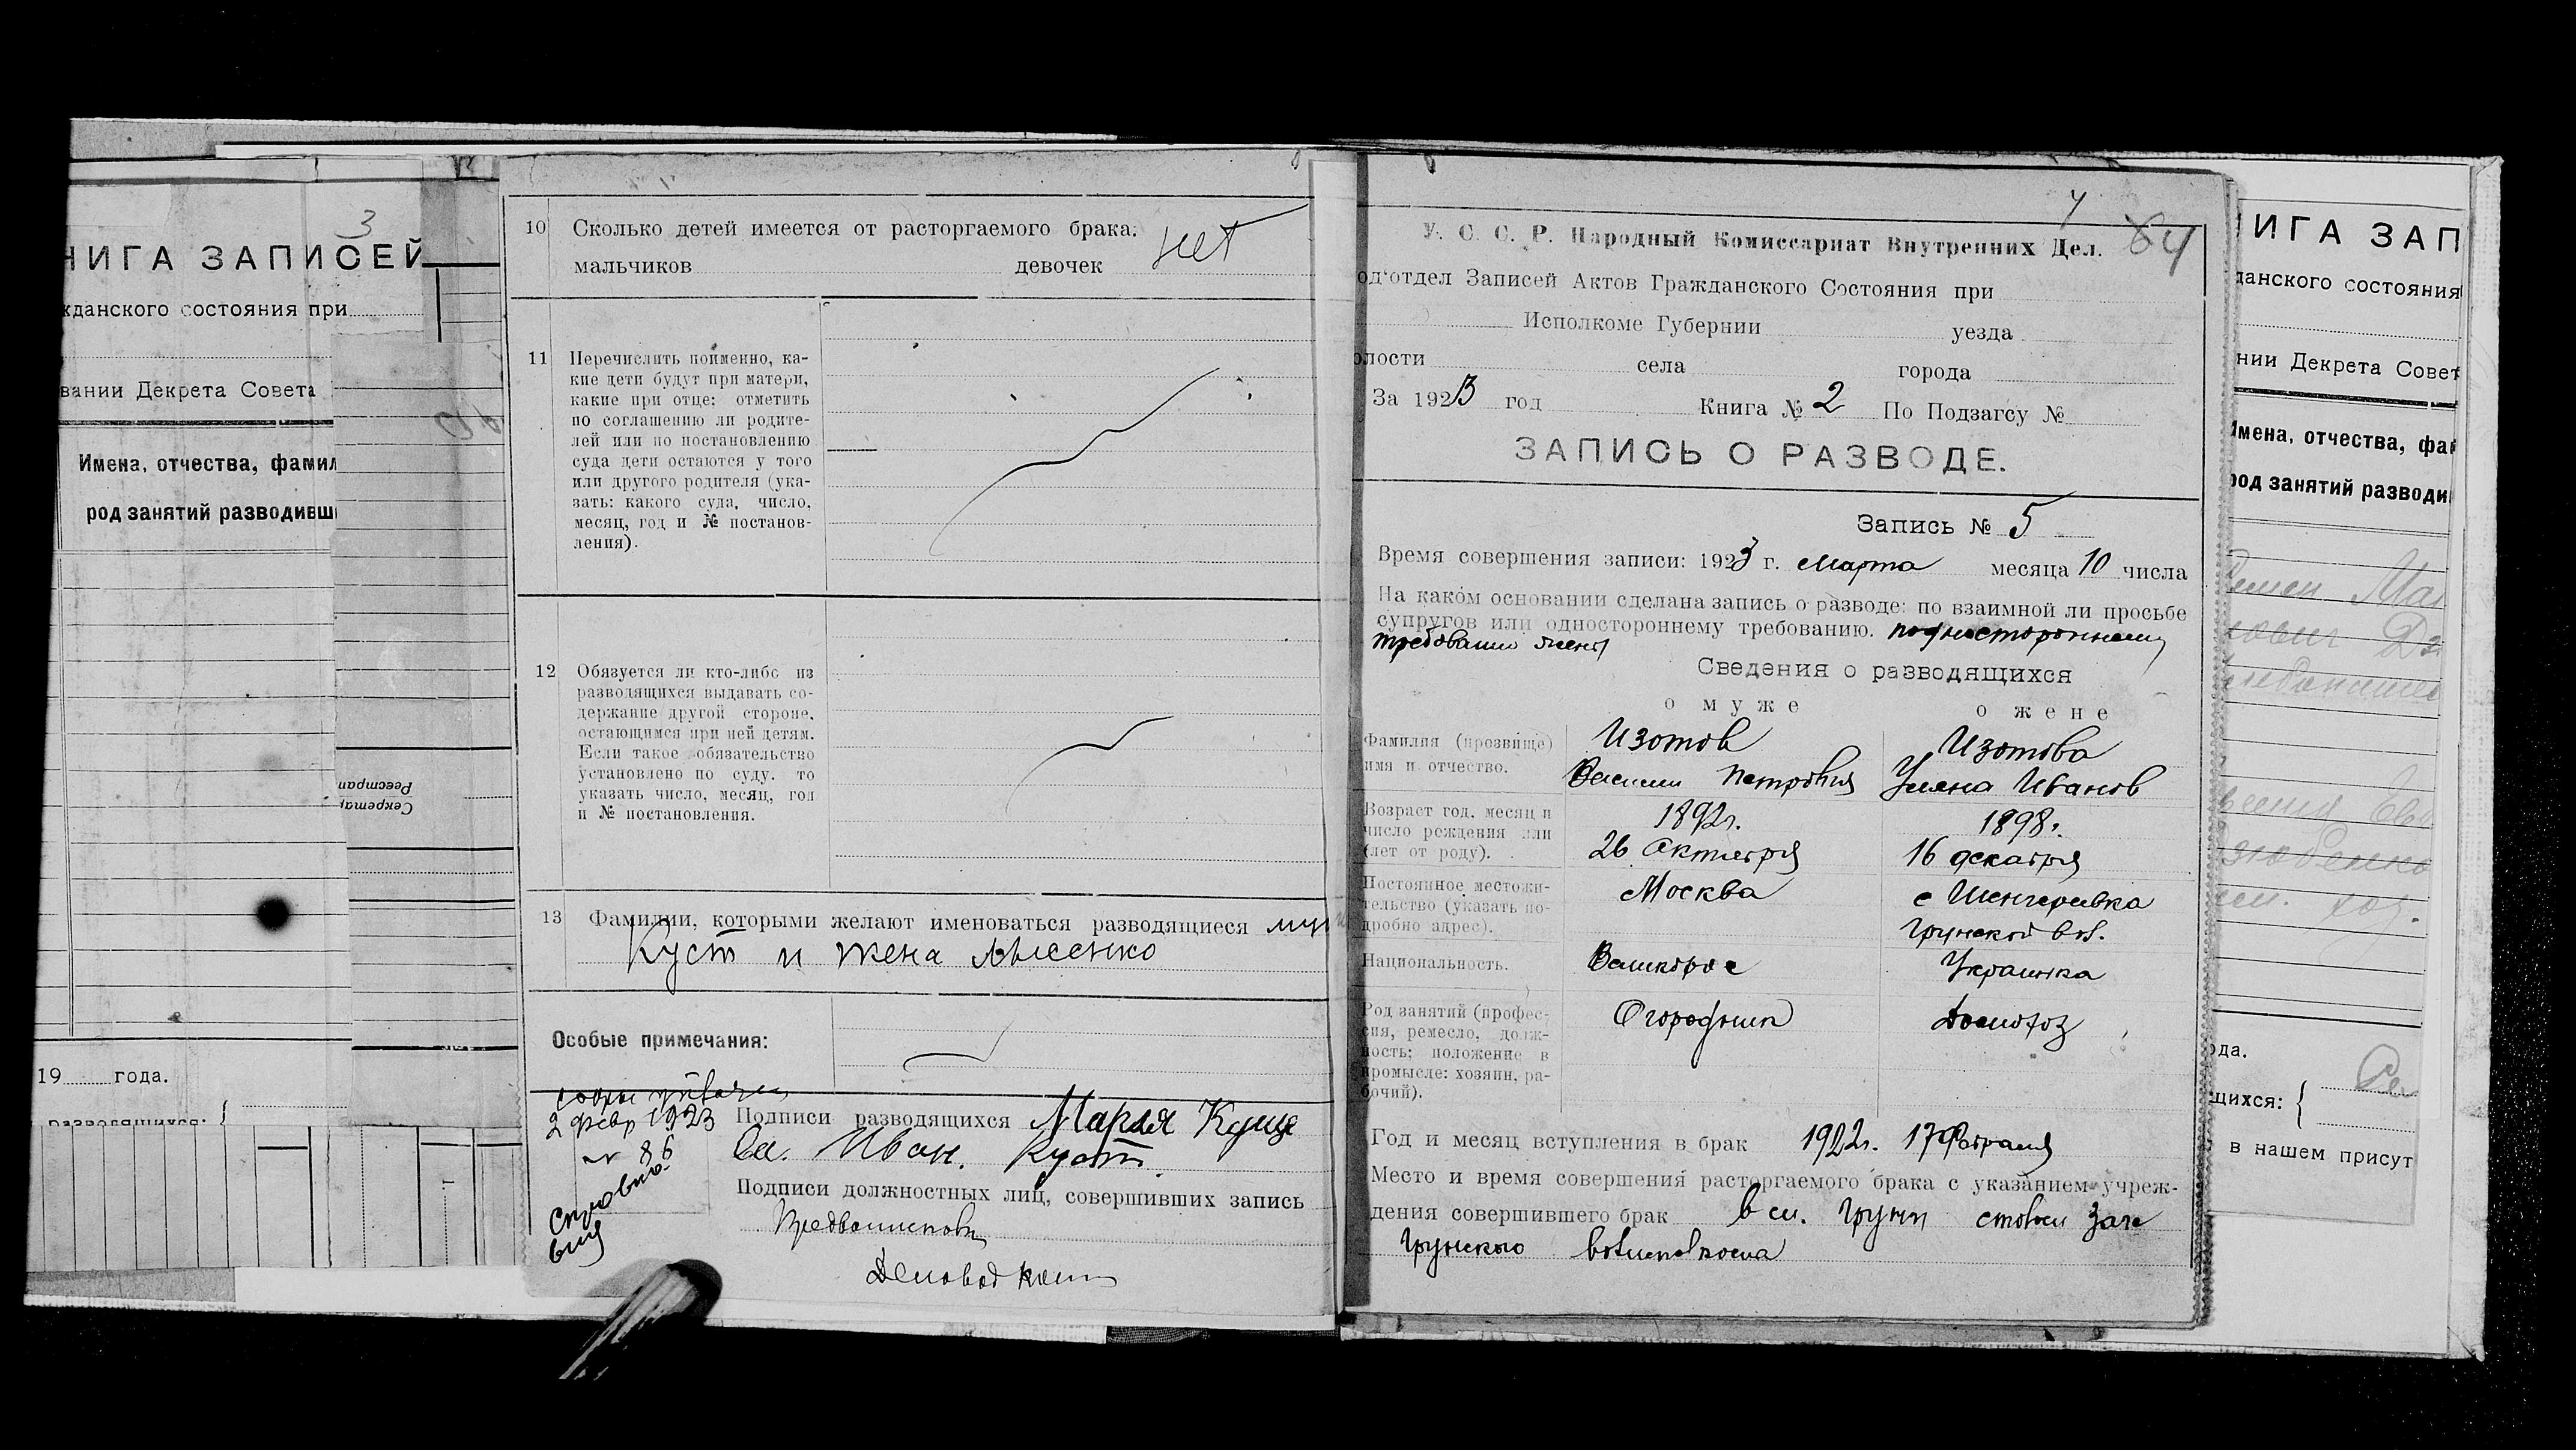 3
НИГА ЗАПИСЕЙ
жданского состояния при
вании Декрета Совета
Имена, отчества, фамил
род занятий разводивш
Реестрап
Секретар
19 года.
разводящихся:
10 Сколько детей имеется от расторгаемого брака.
мальчиков девочек нет
11 Перечислить поименно, ка-
кие дети будут при матери,
какие при отце; отметить
по соглашению ли родите-
лей или по постановлению
суда дети остаются у того
или другого родителя (ука-
зать: какого суда, число,
месяц, год и № постанов-
ления).
12 Обязуется ли кто-либо из
разводящихся выдавать со-
держание другой стороне,
остающимся при ней детям.
Если такое обязательство
установлено по суду, то
указать число, месяц, год
и № постановления.
13 Фамилии, которыми желают именоваться разводящиеся муж
Куст и жена Лысенко
Особые примечания:
2 февр 1923
№ 86
Подписи разводящихся Мария Куще
Иван. Куст.
Подписи должностных лиц, совершивших запись
Деловод
У
64
У. С. С. Р. Народный Комиссариат Внутренних Дел.
од'отдел Записей Актов Гражданского Состояния при
Исполкоме Губернии уезда
олости села города
За 1923 год Книга № 2 По Подзагсу №
ЗАПИСЬ О РАЗВОДЕ.
Запись № 5
Время совершения записи: 1923 г. марта месяца 10 числа
На каком основании сделана запись о разводе: по взаимной ли просьбе
супругов или одностороннему требованию. по одностороннему
требованию жены
Сведения о разводящихся
о муже о жене
Фамилия (прозвище)
имя и отчество.
Изотов
Василий Петрович
Изотова
Уляна Иванов
Возраст год, месяц и
число рождения или
(лет от роду).
1892г.
26 Октября
1898г.
16 декабря
Постоянное местожи-
тельство (указать по-
дробно адрес).
Москва
с Шенгеривка
Грунской вол.
Национальность.
Великорос
Украинка
Род занятий (профес-
сия, ремесло, долж-
ность; положение в
промысле: хозяин, ра-
бочий).
Огородник
Домохоз
Год и месяц вступления в брак 1922г. 17 Февраля
Место и время совершения расторгаемого брака с указанием учреж-
дения совершившего брак в сл. Груни столом Загс
Грунского волисполкома
НИГА ЗАП
данского состояния
нии Декрета Совет
Имена, отчества, фам
род занятий разводи
ода.
щихся:
в нашем присут